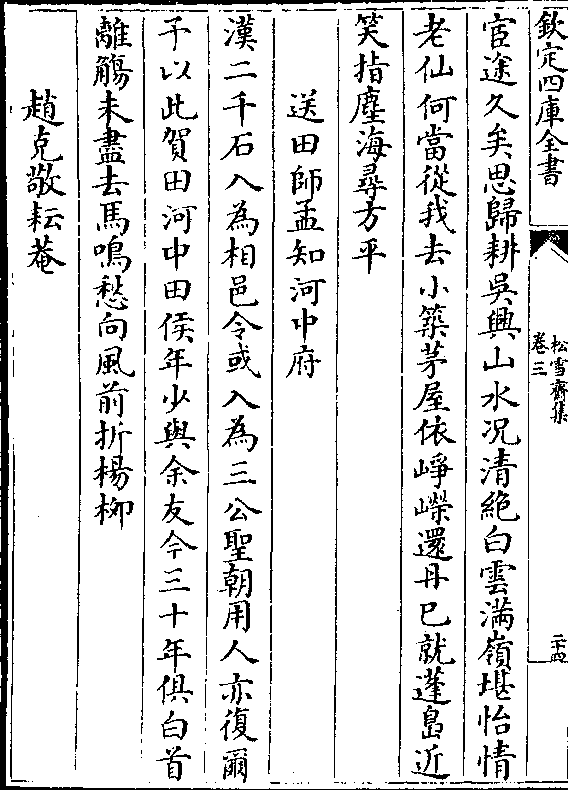 欽定四庫全書
松雪齋集
卷三
二十四
宦途久矣思歸耕吳興山水况清絶白雲滿嶺堪怡情
老仙何當從我去小築茅屋依崢嶸還丹已就蓬島近
笑指塵海尋方平
送田師孟知河中府
漢二千石入為相邑令或入為三公聖朝用人亦復爾
予以此賀田河中田侯年少與余友今三十年俱白首
離觴未盡去馬鳴愁向風前折楊柳
趙克敬耘菴